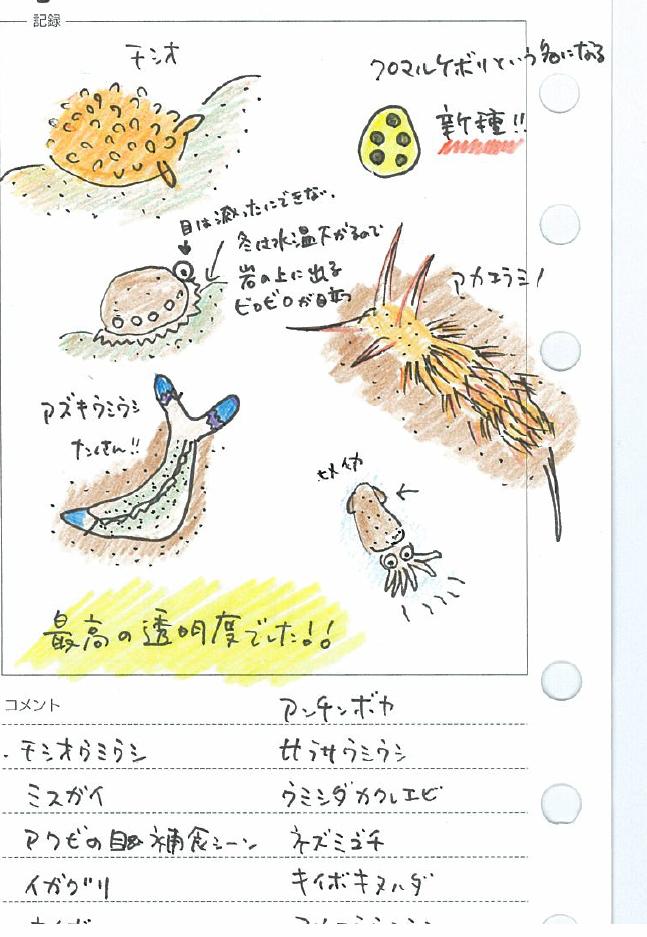 記録
チシオ
クロマルケボリという名になる
新種!!
目は滅ったにできない、
冬は水温下がるので
岩の上に出る
ビロビロが目立つ
アカエラミノ
アズキウミウシ
たくさん!!
ヒメイカ
最高の透明度でした!!
コメント
アンチンボカ
・チシオウミウシ
サラサウミウシ
ミスガイ
ウミシダカクレエビ
アワビの目 補食シーン
ネズミゴチ
イガグリ
キイボキヌハダ